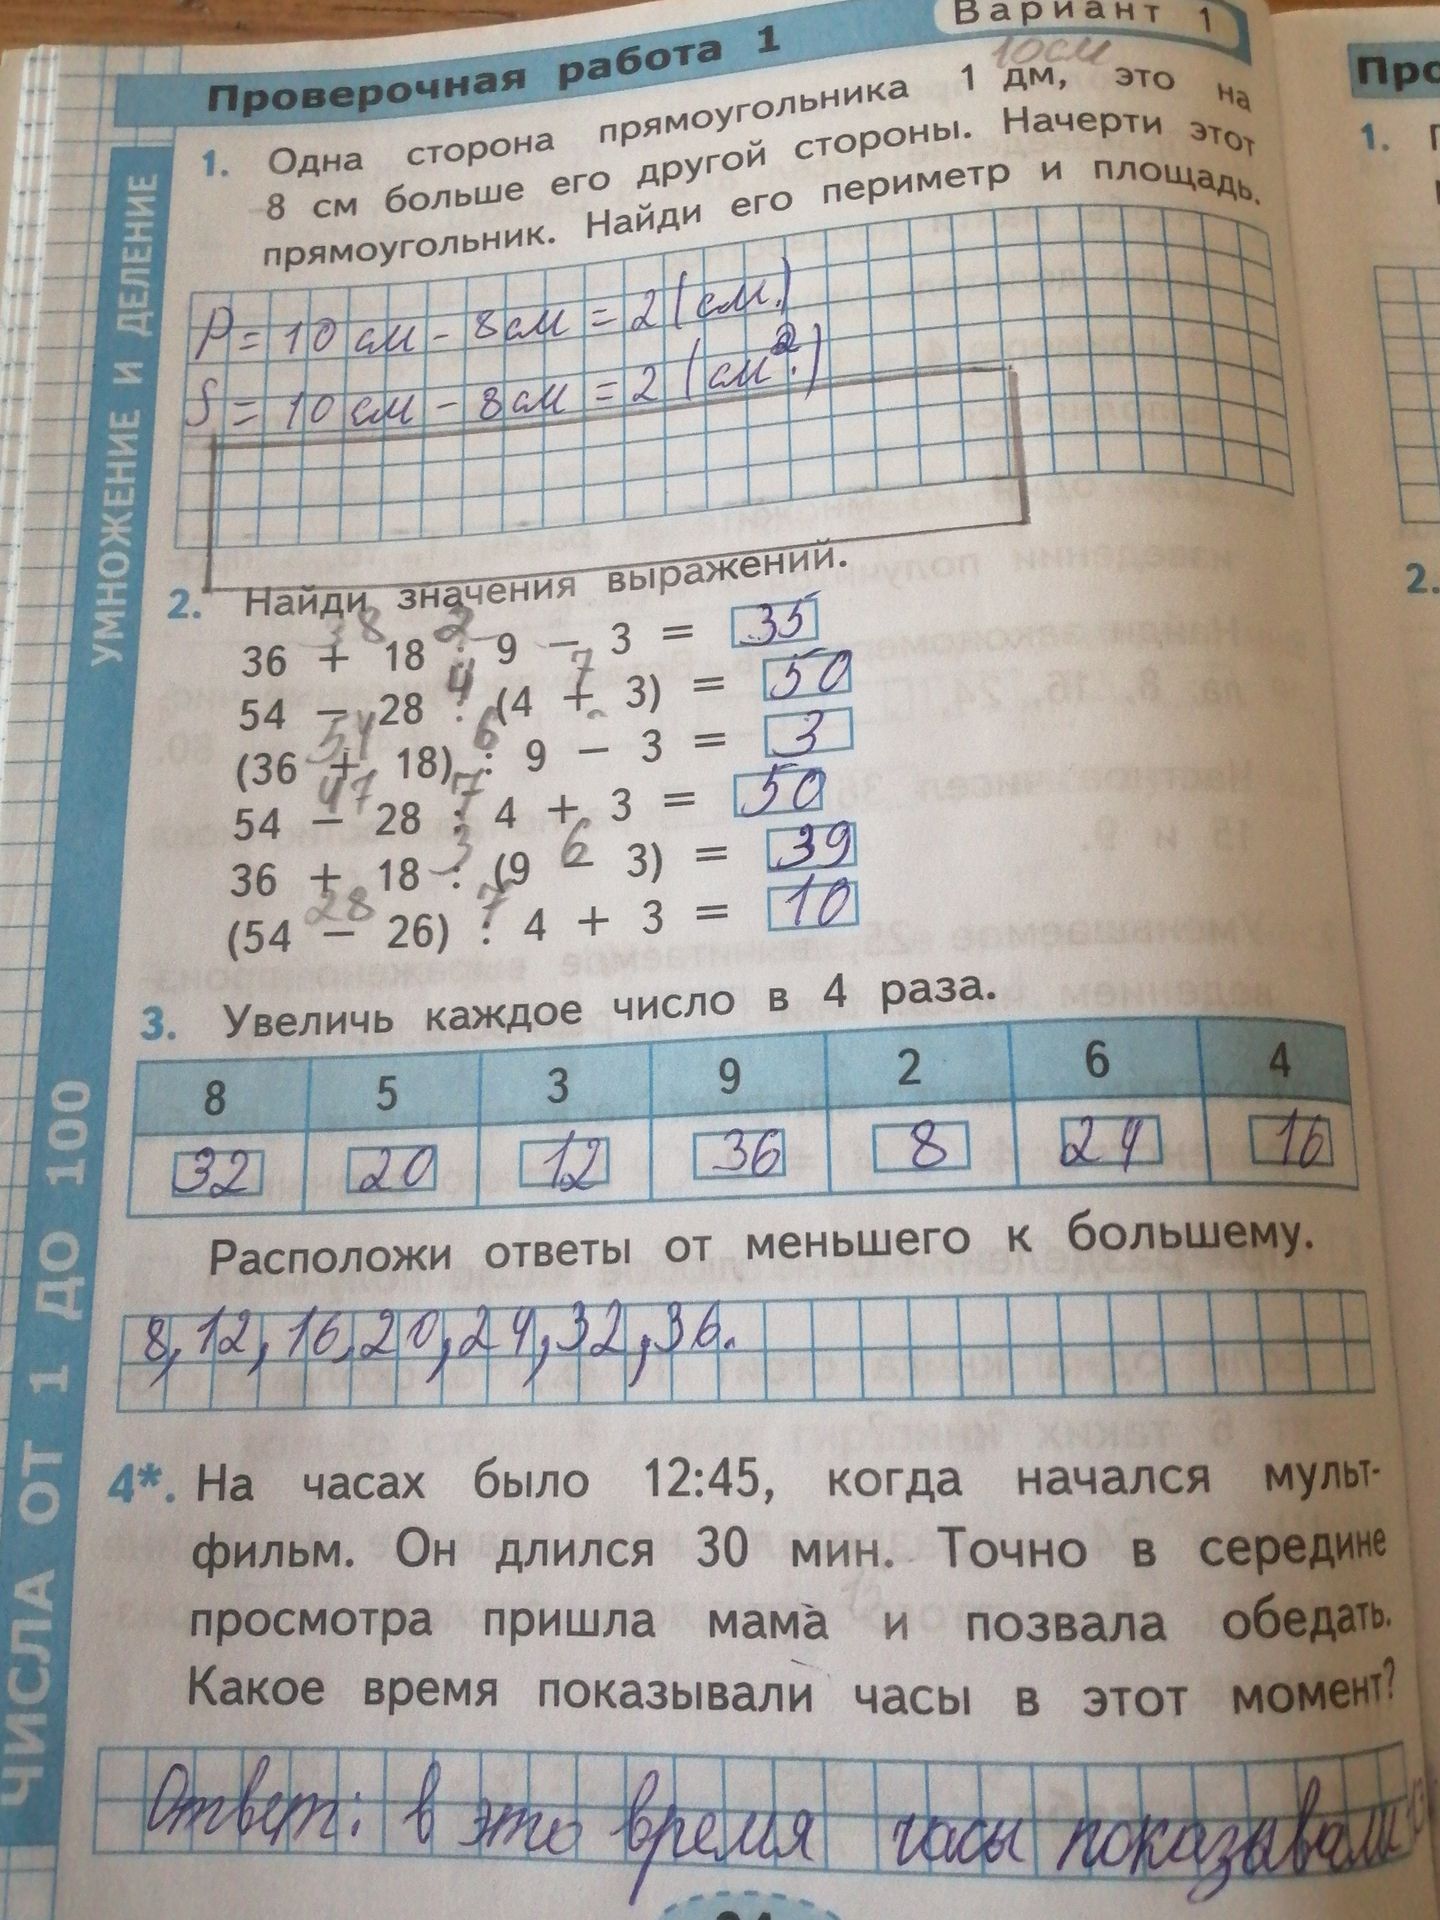 Вариант 1
Проверочная работа 1
10см
1. Одна сторона прямоугольника 1 дм, это на
8 см больше его другой стороны. Начерти этот
прямоугольник. Найди его периметр и площадь.
P = 10 см - 8 см = 2 (см.)
S = 10 см - 8 см = 2 (см².)
2. Найди значения выражений.
38 2
36 + 18 : 9 − 3 = 35
4 7
54 − 28 : (4 + 3) = 50
54 6
(36 + 18) : 9 − 3 = 3
47 7
54 − 28 : 4 + 3 = 50
3 6
36 + 18 : (9 − 3) = 39
28 7
(54 − 26) : 4 + 3 = 10
3. Увеличь каждое число в 4 раза.
8 5 3 9 2 6 4
32 20 12 36 8 24 16
Расположи ответы от меньшего к большему.
8, 12, 16, 20, 24, 32, 36.
4*. На часах было 12:45, когда начался мульт-
фильм. Он длился 30 мин. Точно в середине
просмотра пришла мама и позвала обедать.
Какое время показывали часы в этот момент?
Ответ: в это время часы показывали
УМНОЖЕНИЕ И ДЕЛЕНИЕ
ЧИСЛА ОТ 1 ДО 100
Про
1.
2.